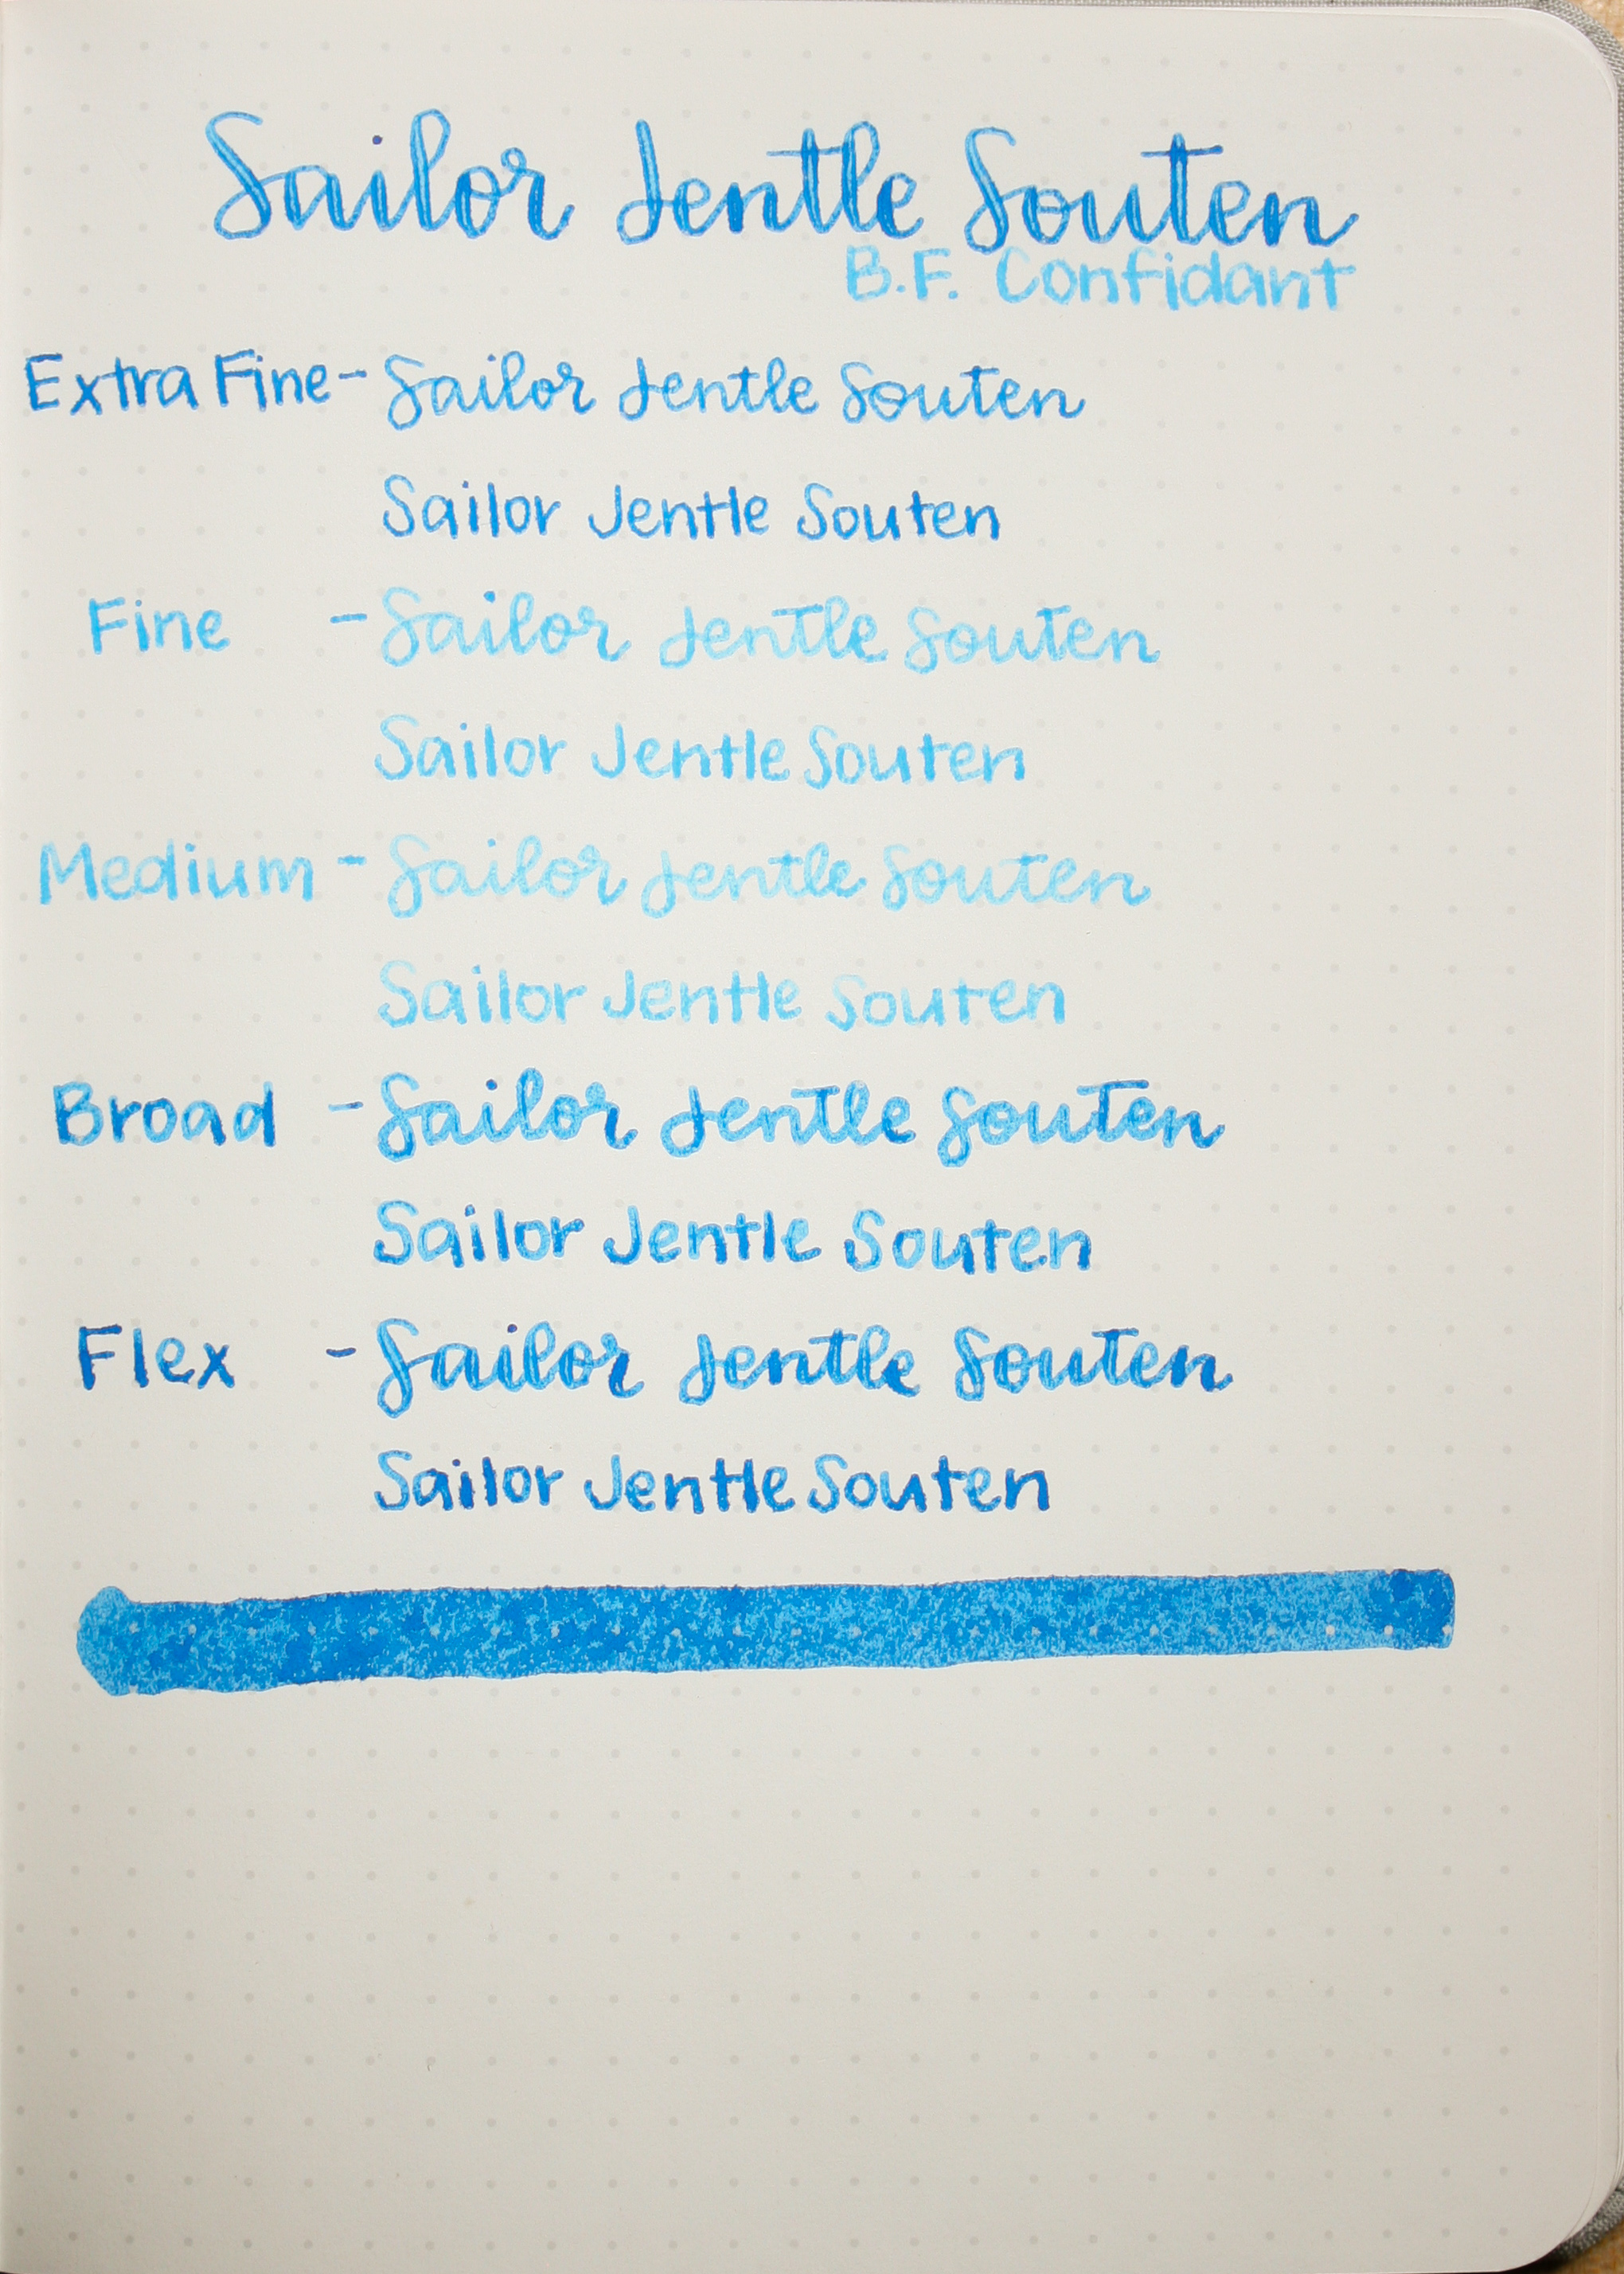 Sailor Jentle Souten
B.F. Confidant
Extra Fine - Sailor Jentle Souten
Sailor Jentle Souten
Fine - Sailor Jentle Souten
Sailor Jentle Souten
Medium - Sailor Jentle Souten
Sailor Jentle Souten
Broad - Sailor Jentle Souten
Sailor Jentle Souten
Flex - Sailor Jentle Souten
Sailor Jentle Souten